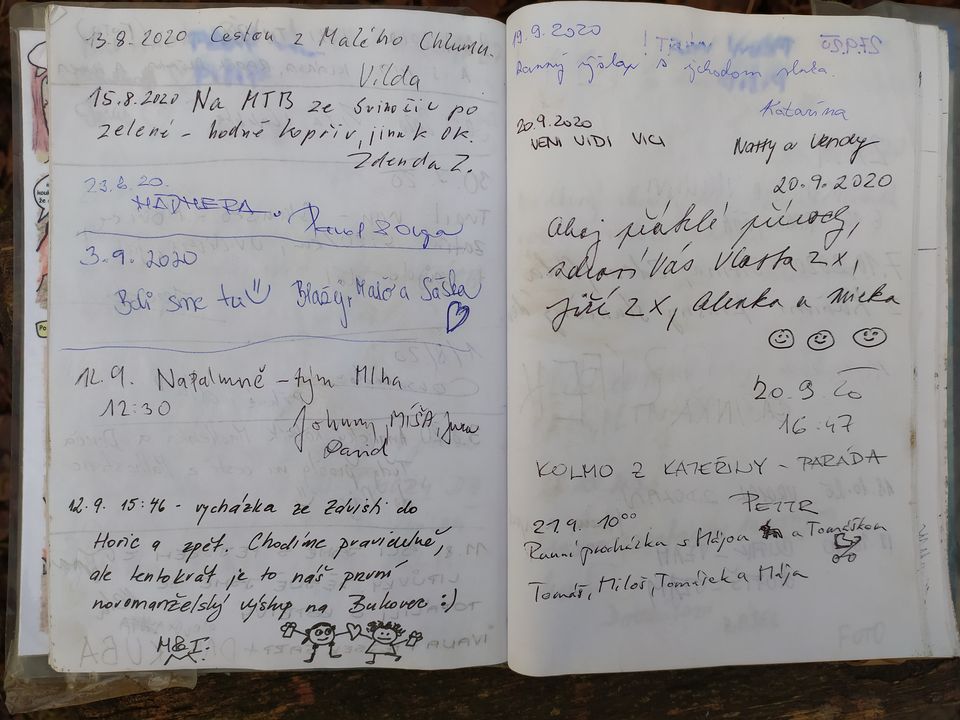 13.8.2020 Cestou z Malého Chlumu.
Vilda
15.8.2020 Na MTB ze Svinošic po
zelené - hodně kopřiv, jinak OK.
Zdenda Z.
23.8.20.
NÁDHERA. Pavel & Olga
3.9.2020
Byli sme tu Blažej, Maló a Sáška
12.9. Napalmně - tým Mlha
12:30
Johnny, MÍŠA, Jura
David
12.9. 15:46 - vycházka ze Závisti do
Hořic a zpět. Chodíme pravidelně,
ale tentokrát je to náš první
novomanželský výstup na Bukovec :)
M&I.
19.9.2020
Ranný výšlap s východom slnka.
Katarína
20.9.2020
VENI VIDI VICI Natty a Vendy
20.9.2020
Ahoj přátelé přírody,
zdraví Vás Vlasta 2x,
Jiří 2x, Alenka a Mirka
20.9.20
16:47
KOLMO Z KATEŘINY - PARÁDA
PETR
21.9. 10⁰⁰
Ranní procházka s Májou a Tomáškem
Tomáš, Miloš, Tomášek a Mája